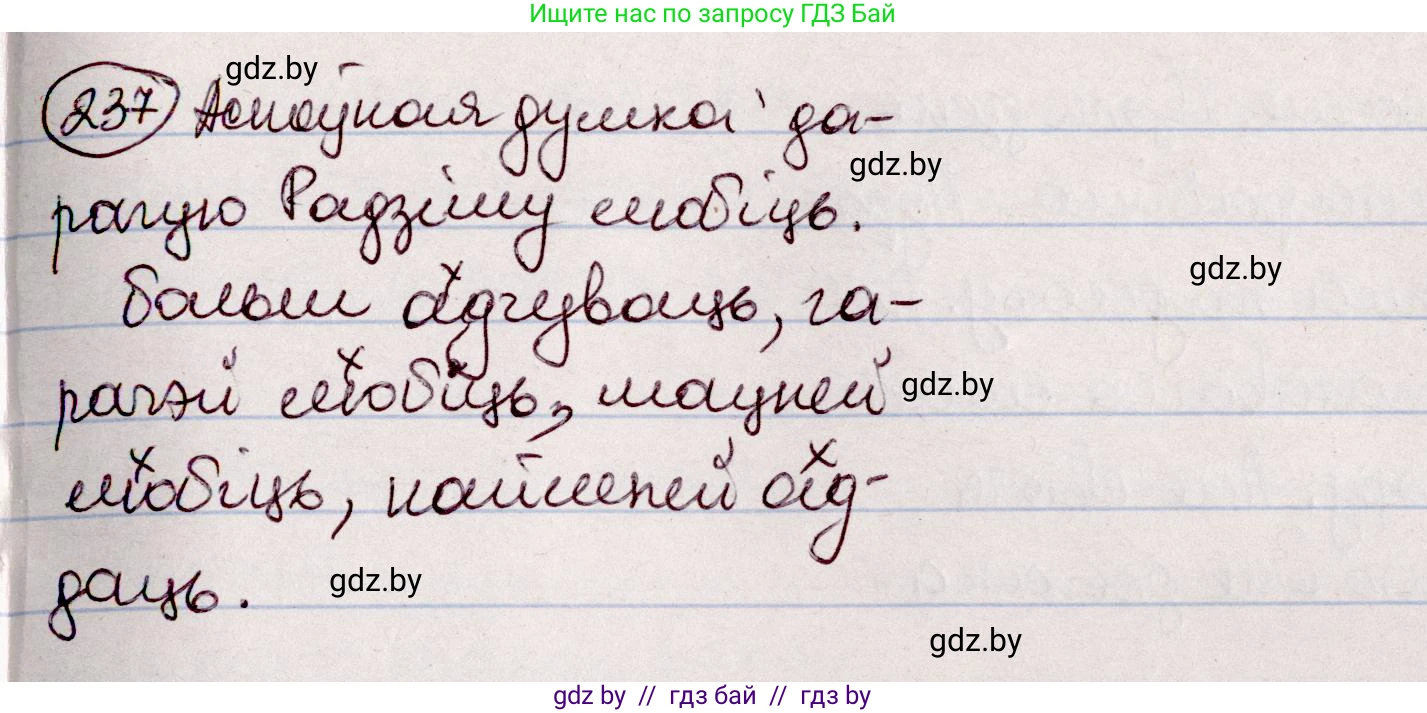 Ищите нас по запросу ГДЗ Бай
gdz.by
237 Асноўная думка да-
gdz.by
рагую Радзіму любіць.
gdz.by
больш адчуваць, га-
рачэй любіць, мацней
gdz.by
любіць, найлепей ад-
даць.
gdz.by
gdz.by
gdz by // гдз бай // гдз by